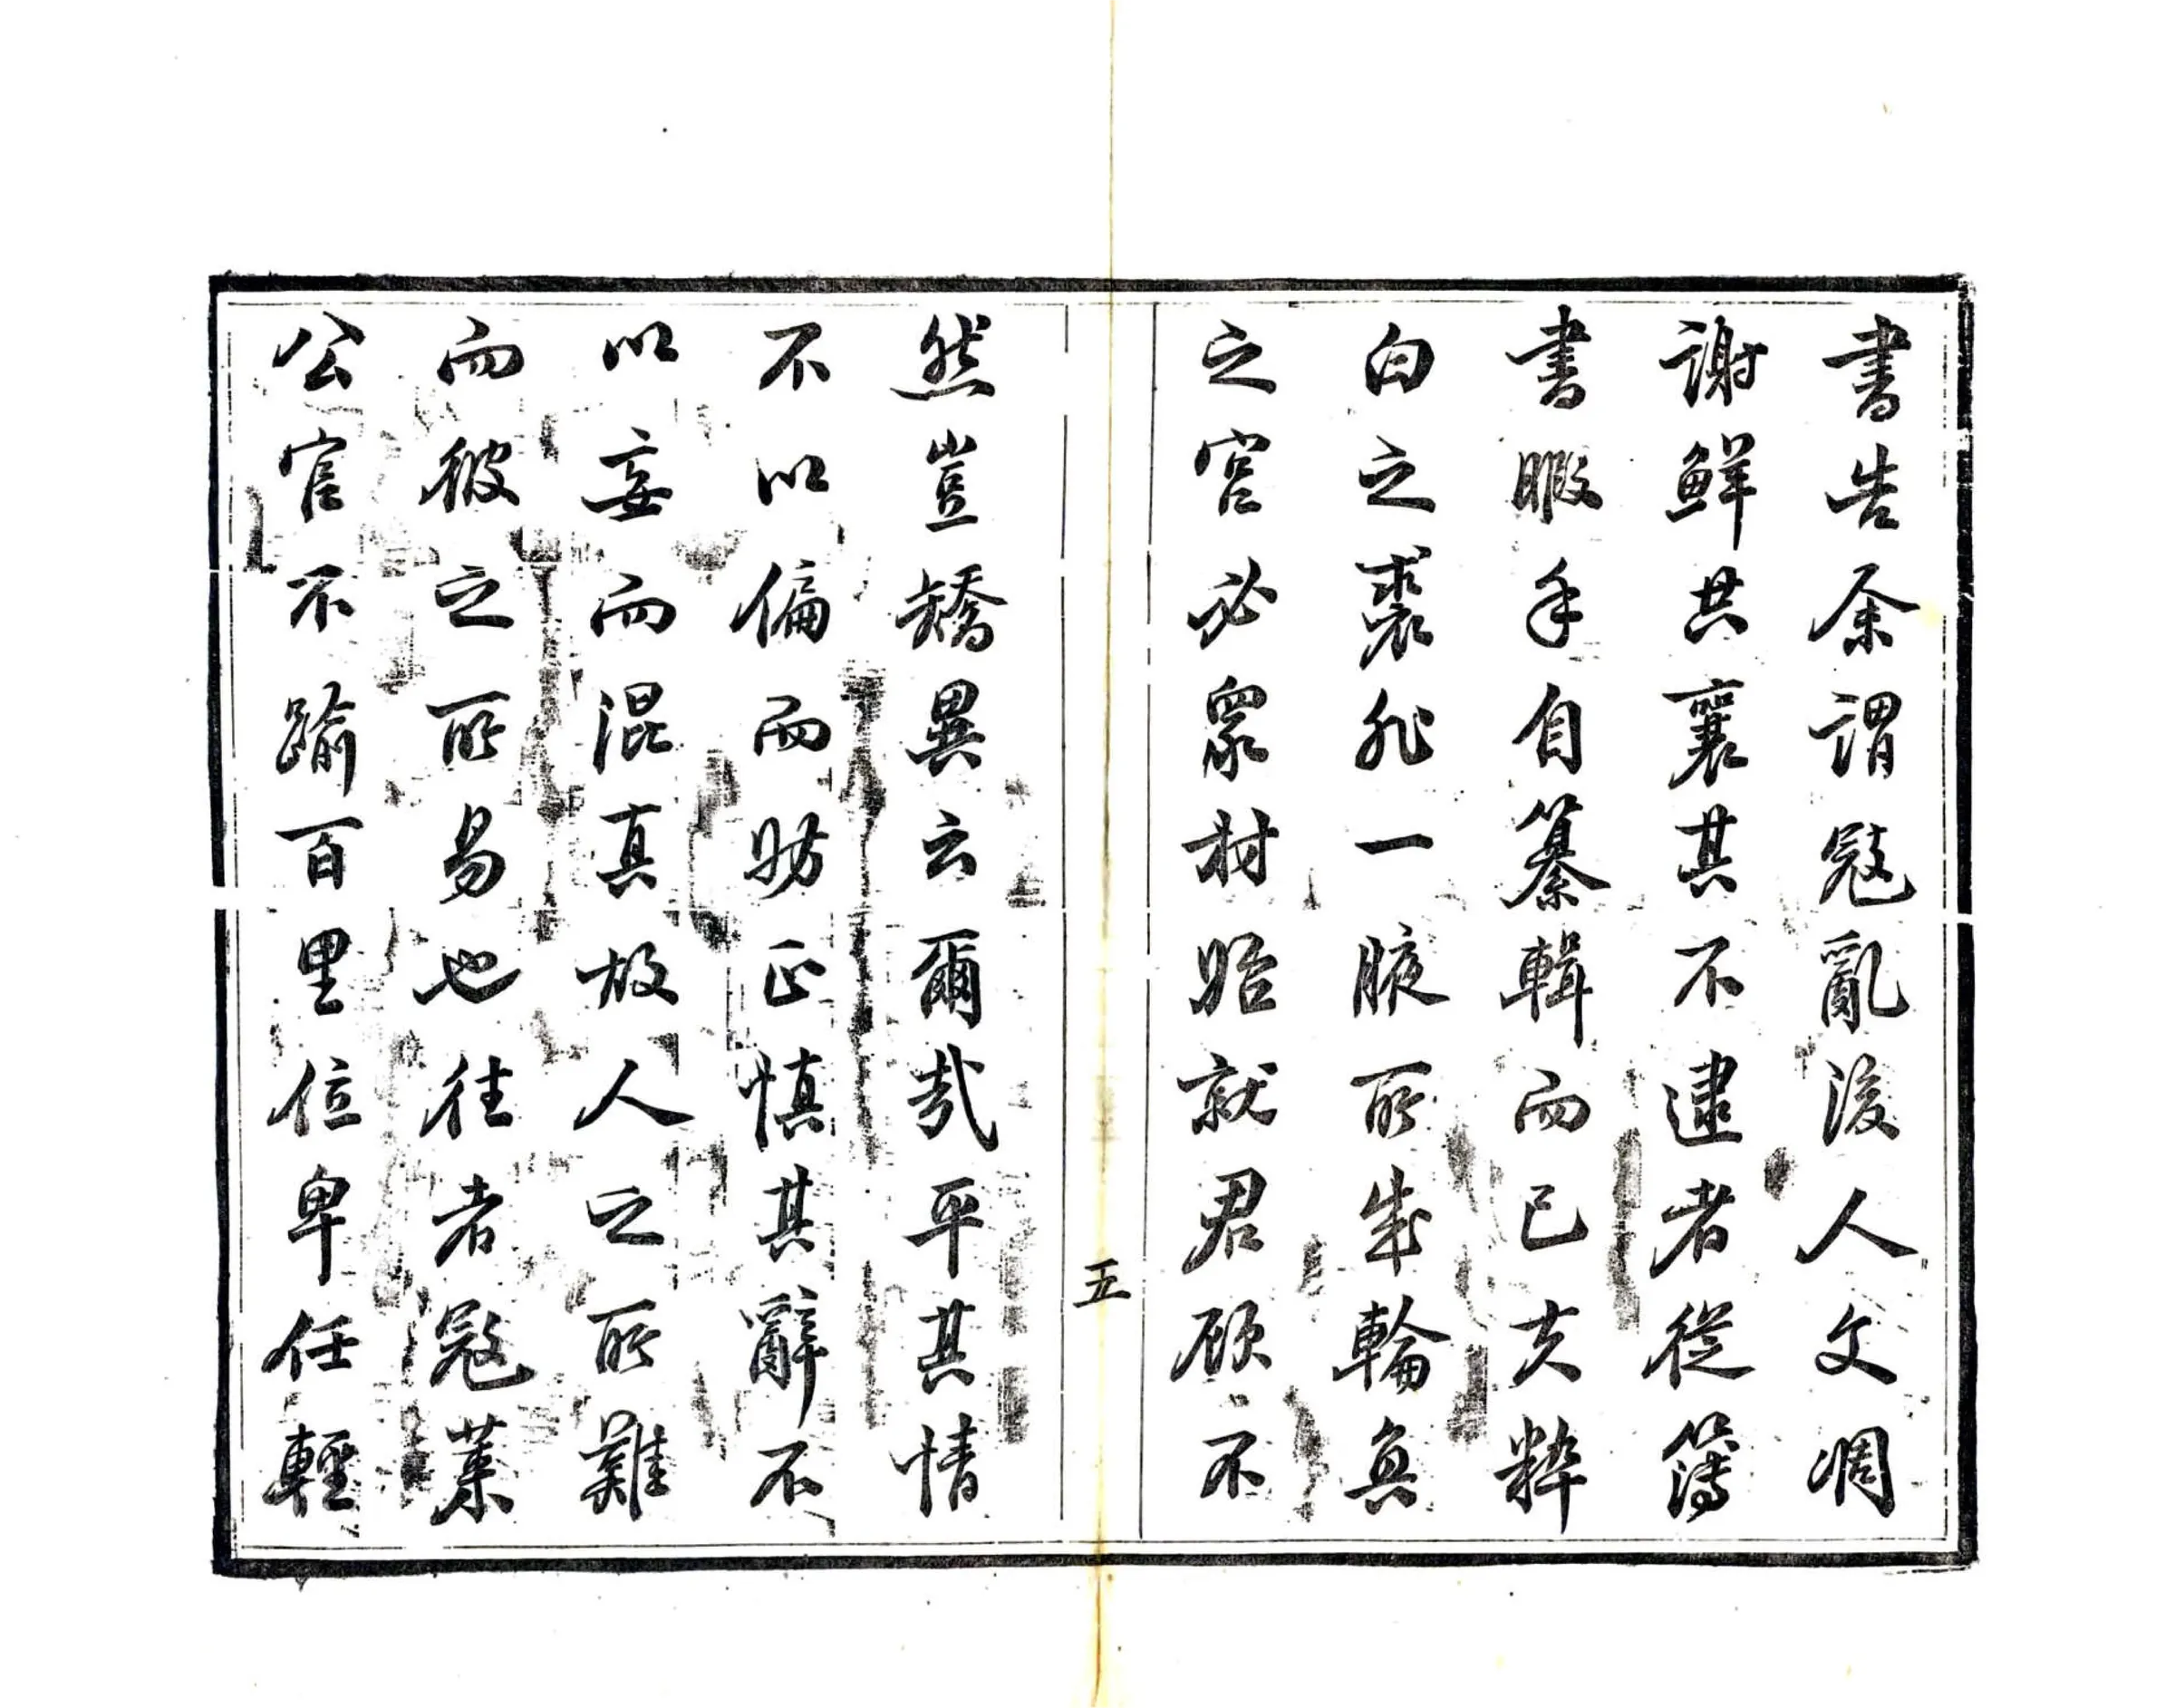 書告余謂寇亂後人文凋
謝鮮共襄其不逮者從簿
書暇手自纂輯而已夫粹
白之裘非一腋所成輪奐
之宮必衆材始就君顧不
五
然豈矯異云爾哉平其情
不以偏而妨正慎其辭不
以妄而混真故人之所難
而彼之所易也往者寇萊
公官不踰百里位卑任輕